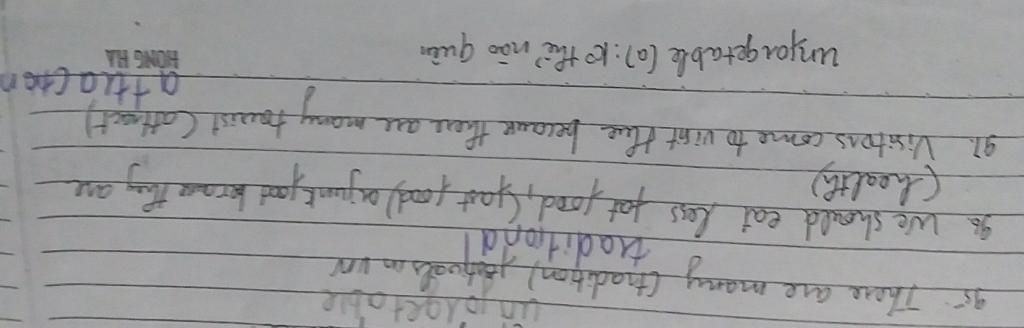 95. There are many (tradition) festivals in VN
traditional
96. We should eat less fat food, (fast food) or junk food because they are
(health)
97. Visitors come to visit Hue because there are many tourist (attract)
attraction
HONG HA
unforgetable (a): ko thể nào quên